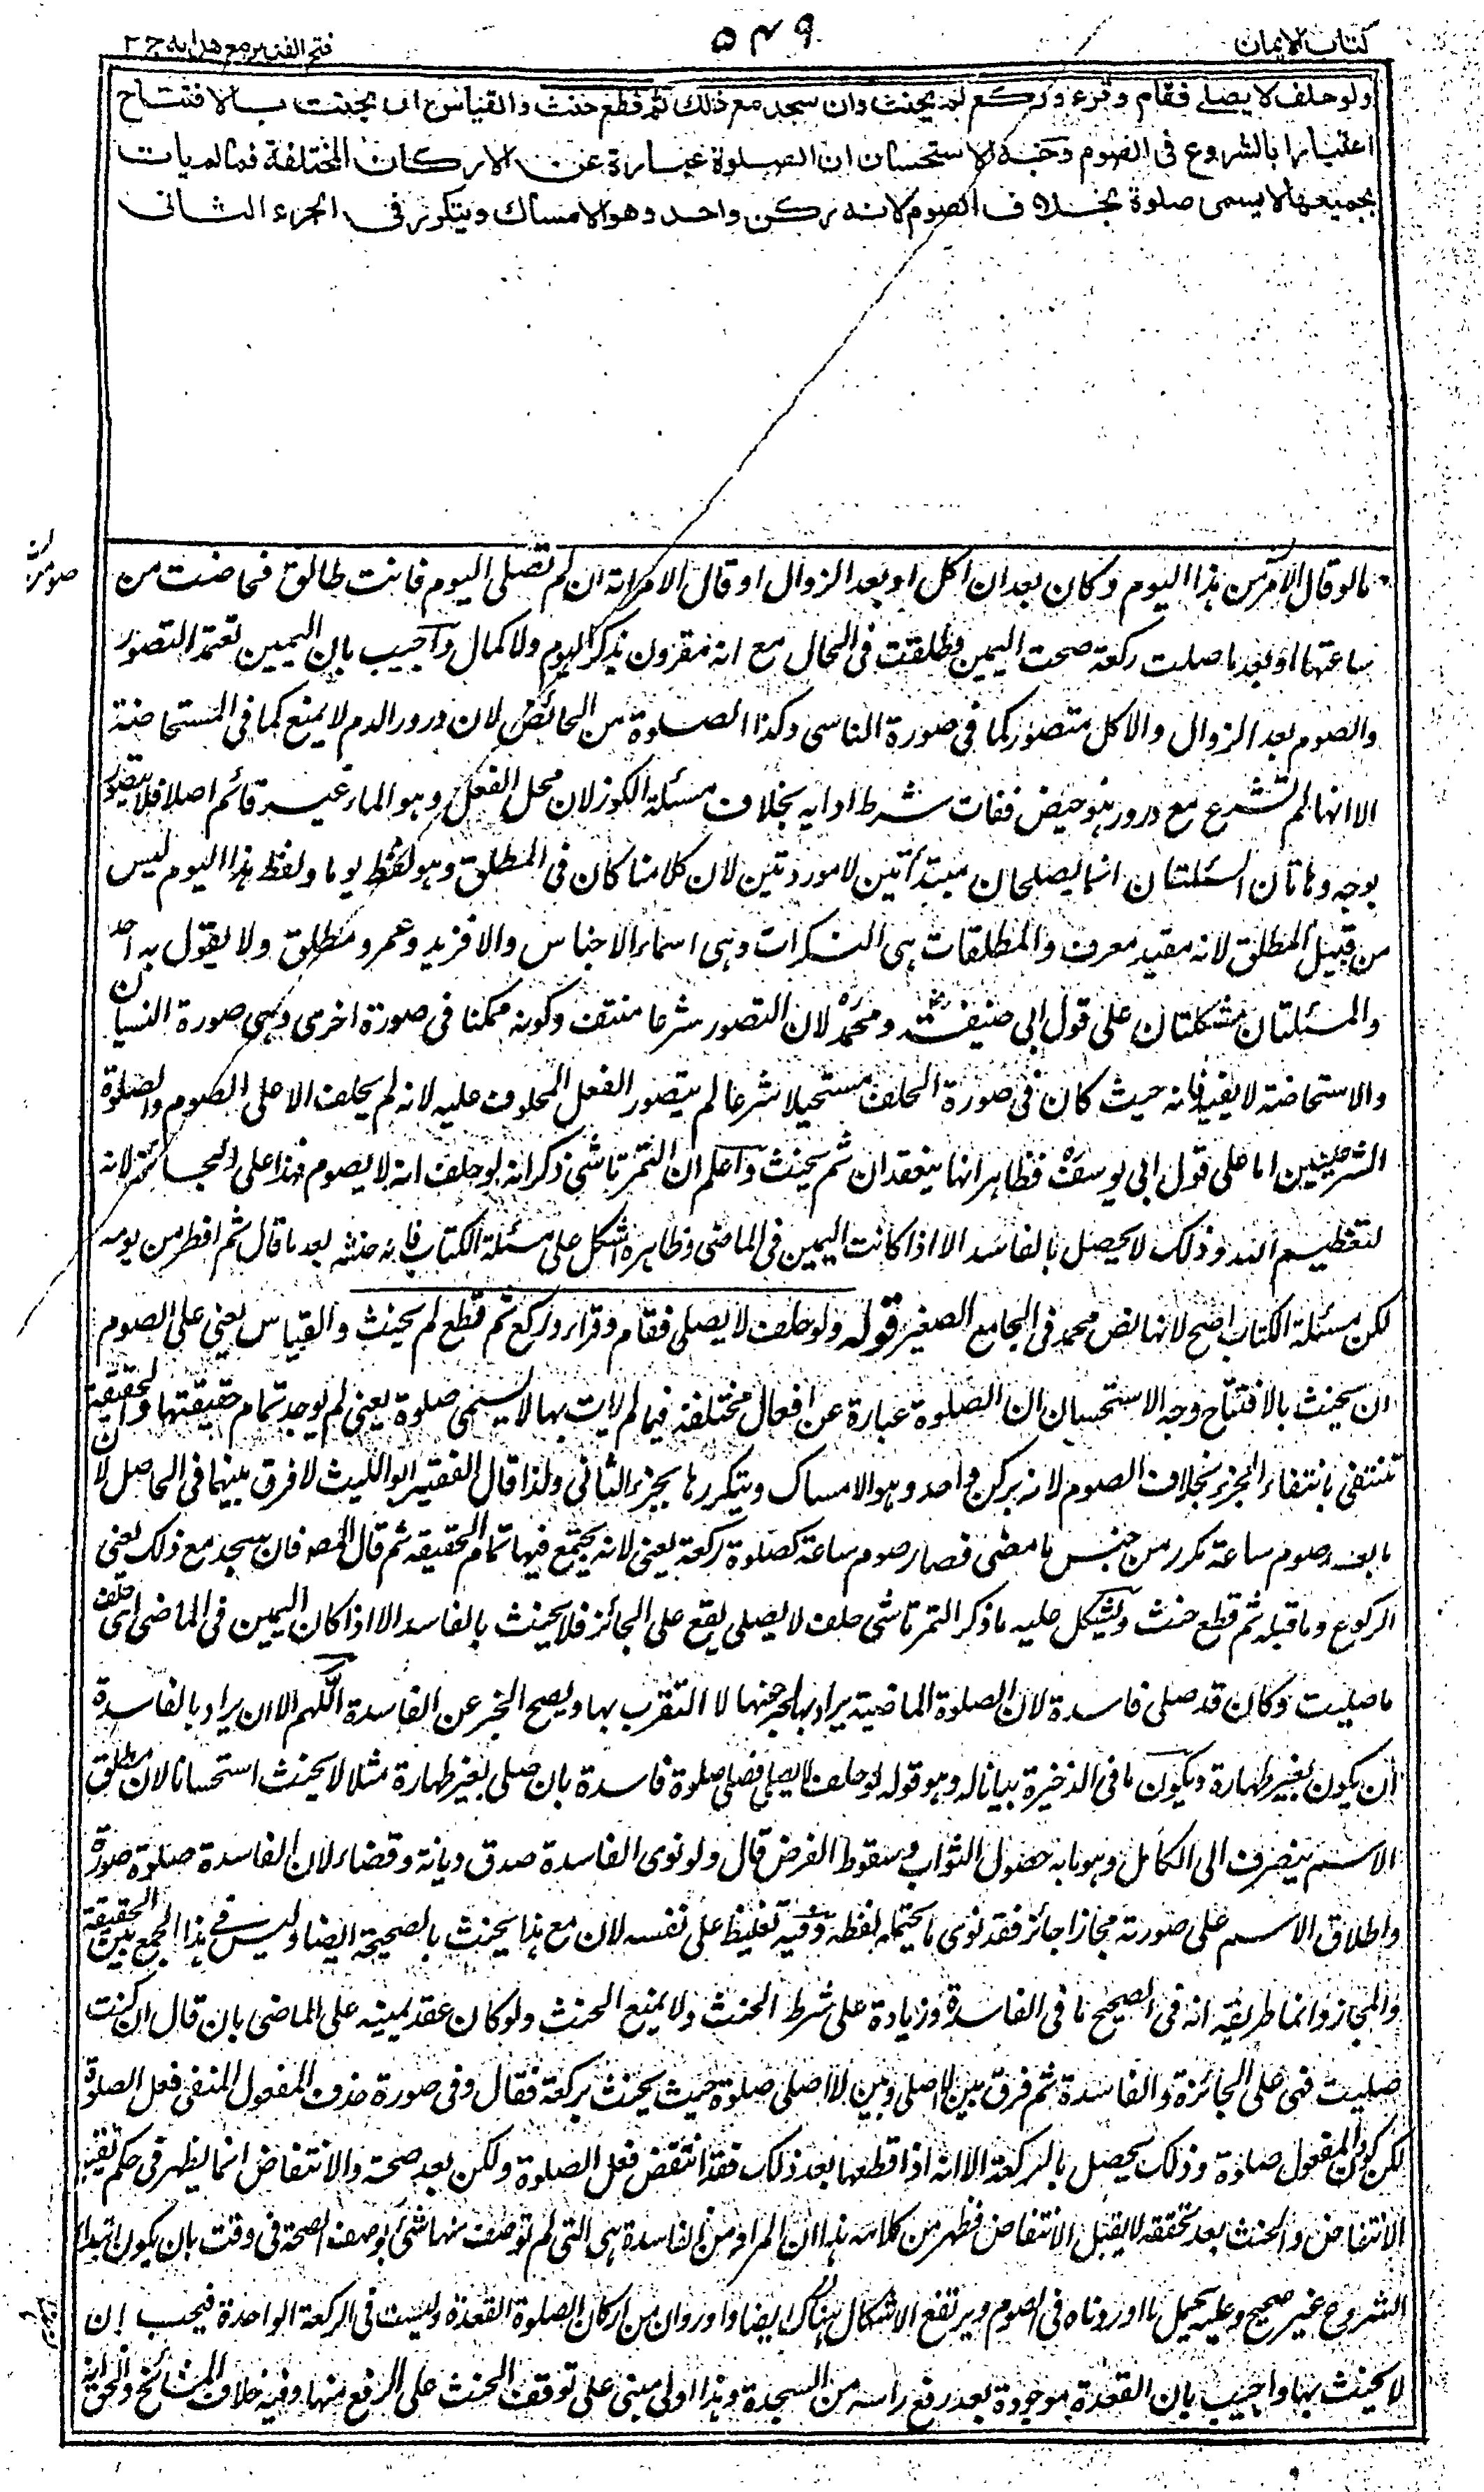 كتاب الايمان
٥٤٩
فتح القدير مع هدايه ج ٢
ولو حلف لا يصلي فقام وقرء وركع لم يحنث وان سجد مع ذلك ثم قطع حنث والقياس ان يحنث بالافتتاح
اعتبارا بالشروع في الصوم وجه الاستحسان ان الصلوة عبارة عن الاركان المختلفة فما لم يات
بجميعها لا يسمى صلوة بخلاف الصوم لانه ركن واحد وهو الامساك ويتكرر في الجزء الثاني
مالو قال لآخر من هذا اليوم وكان بعد ان اكل او بعد الزوال او قال لامراته ان لم تصلي اليوم فانت طالق فحاضت من
ساعتها او بعد ما صلت ركعة صحت اليمين وطلقت في الحال مع انه مقرون بذكر اليوم ولا كمال واجيب بان اليمين تعتمد التصور
والصوم بعد الزوال والاكل متصور كما في صورة الناسي وكذا الصلوة من الحائض لان درور الدم لا يمنع كما في المستحاضة
الا انها لم تشرع مع درور هو حيض ففات شرط ادايه بخلاف مسئلة الكوز لان محل الفعل وهو الماء غير قائم اصلا فلا يتصور
بوجه وهاتان المسئلتان انما يصلحان مبتدأتين لا موردتين لان كلامنا كان في المطلق وهو لفظ يوما ولفظ هذا اليوم ليس
من قبيل المطلق لانه مقيد معرف والمطلقات هي النكرات وهي اسماء الاجناس والا فزيد وعمرو مطلق ولا يقول به احد
والمسئلتان مشكلتان على قول ابي حنيفة ومحمد لان التصور شرعا منتف وكونه ممكنا في صورة اخرى وهي صورة النسيان
والاستحاضة لا يفيد فانه حيث كان في صورة الحلف مستحيلا شرعا لم يتصور الفعل المحلوف عليه لانه لم يحلف الا على الصوم والصلوة
الشرعيين اما على قول ابي يوسف فظاهر انهما ينعقدان ثم يحنث واعلم ان التمرتاشي ذكر انه لو حلف انه لا يصوم فهذا على الجائز لانه
لتعظيم الله وذلك لا يحصل بالفاسد الا اذا كانت اليمين في الماضي وظاهره اشكل على مسئلة الكتاب فانه حنثه بعد ما قال ثم افطر من يومه
لكن مسئلة الكتاب اصح لانها نص محمد في الجامع الصغير قوله ولو حلف لا يصلي فقام وقرا وركع ثم قطع لم يحنث والقياس يعني على الصوم
ان يحنث بالافتتاح وجه الاستحسان ان الصلوة عبارة عن افعال مختلفة فما لم يات بها لا يسمى صلوة يعني لم يوجد تمام حقيقتها والحقيقة
تنتفي بانتفاء الجزء بخلاف الصوم لانه ركن واحد وهو الامساك ويتكرر بالجزء الثاني ولذا قال الفقيه ابو الليث لا فرق بينهما في الحاصل لان
ما بعد صوم ساعة تكرر من جنس ما مضى فصار صوم ساعة كصلوة ركعة يعني لانه يجتمع فيها تمام الحقيقة ثم قال المصـ فان سجد مع ذلك يعني
الركوع وما قبله ثم قطع حنث ويشكل عليه ما ذكر التمرتاشي حلف لا يصلي يقع على الجائز فلا يحنث بالفاسد الا اذا كان اليمين في الماضي اي حلف
ما صليت وكان قد صلى فاسدة لان الصلوة الماضية يراد بها الخبر عنها لا التقرب بها ويصح الخبر عن الفاسدة اللهم الا ان يراد بالفاسدة
ان يكون بغير طهارة ويكون ما في الذخيرة بيانا له وهو قوله لو حلف لا يصلي فصلى صلوة فاسدة بان صلى بغير طهارة مثلا لا يحنث استحسانا لان مطلق
الاسم ينصرف الى الكامل وهو ما به حصول الثواب وسقوط الفرض قال ولو نوى الفاسدة صدق ديانة وقضاء لان الفاسدة صلوة صورة
واطلاق الاسم على صورته مجازا جائز فقد نوى ما يحتمله لفظه وفيه تغليظ على نفسه لان مع هذا يحنث بالصحيحة ايضا وليس في هذا الجمع بين الحقيقة
والمجاز وانما طريقه انه في الصحيح ما في الفاسدة وزيادة على شرط الحنث ولا يمنع الحنث ولو كان عقد يمينه على الماضي بان قال ان كنت
صليت فهي على الجائزة والفاسدة ثم فرق بين لا اصلي وبين لا اصلي صلوة حيث يحنث بركعة فقال وفي صورة حذف المفعول المنفي فعل الصلوة
لكن كون المفعول صلوة وذلك يحصل بالركعة الا انه اذا قطعها بعد ذلك فقد انتقض فعل الصلوة ولكن بعد صحته والانتقاض انما يظهر في حكم يقبل
الانتقاض والحنث بعد تحققه لا يقبل الانتقاض فظهر من كلامه هذا ان المراد من الفاسدة هي التي لم توصف منها شئ بوصف الصحة في وقت بان يكون ابتداء
الشروع غير صحيح وعليه يحمل ما اوردناه في الصوم ويرتفع الاشكال هناك ايضا واورد ان من اركان الصلوة القعدة وليست في الركعة الواحدة فيجب ان
لا يحنث بها واجيب بان القعدة موجودة بعد رفع راسه من السجدة وهذا اولى مبني على توقف الحنث على الرفع منها وفيه خلاف المشائخ والحق انه